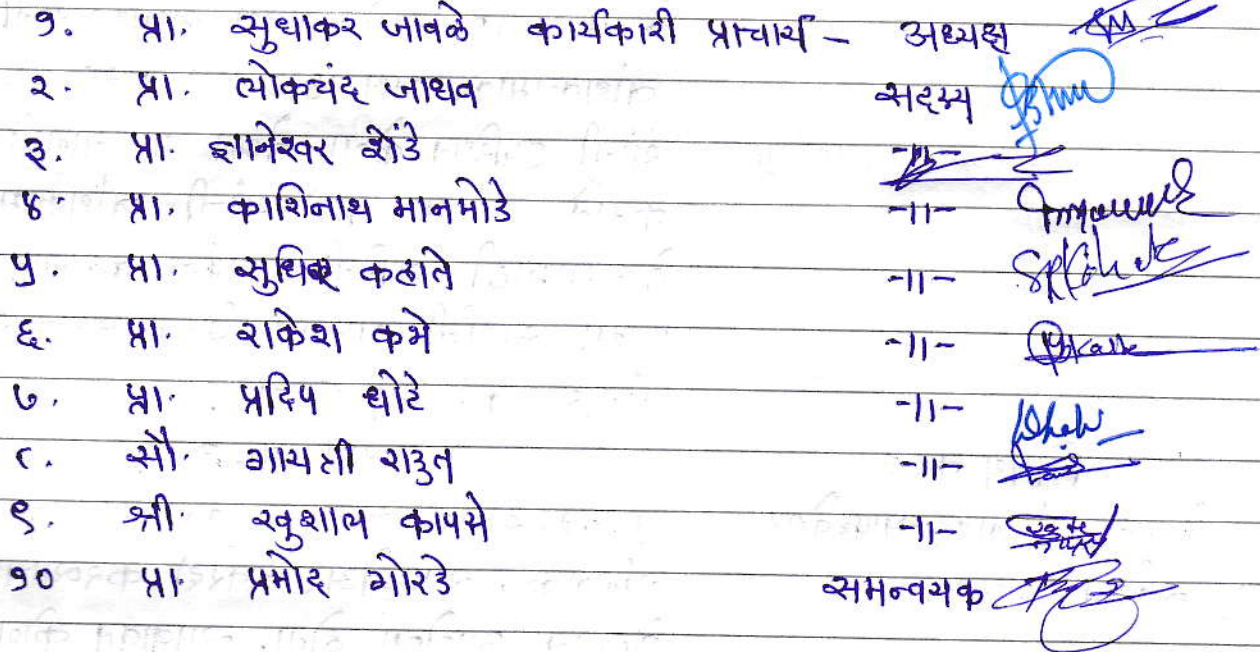 १. प्रा. सुधाकर जावळे कार्यकारी प्राचार्य - अध्यक्ष
२. प्रा. त्योकचंद जाधव सदस्य
३. प्रा. ज्ञानेश्वर शेंडे -11-
४. प्रा. काशिनाथ मानमोडे -11-
५. प्रा. सुधिर कहाते -11-
६. प्रा. राकेश कभे -11-
७. प्रा. प्रदिप धोटे -11-
८. सौ. गायत्री राउत -11-
९. श्री. खुशाल कापसे -11-
१० प्रा. प्रमोद गोरडे समन्वयक